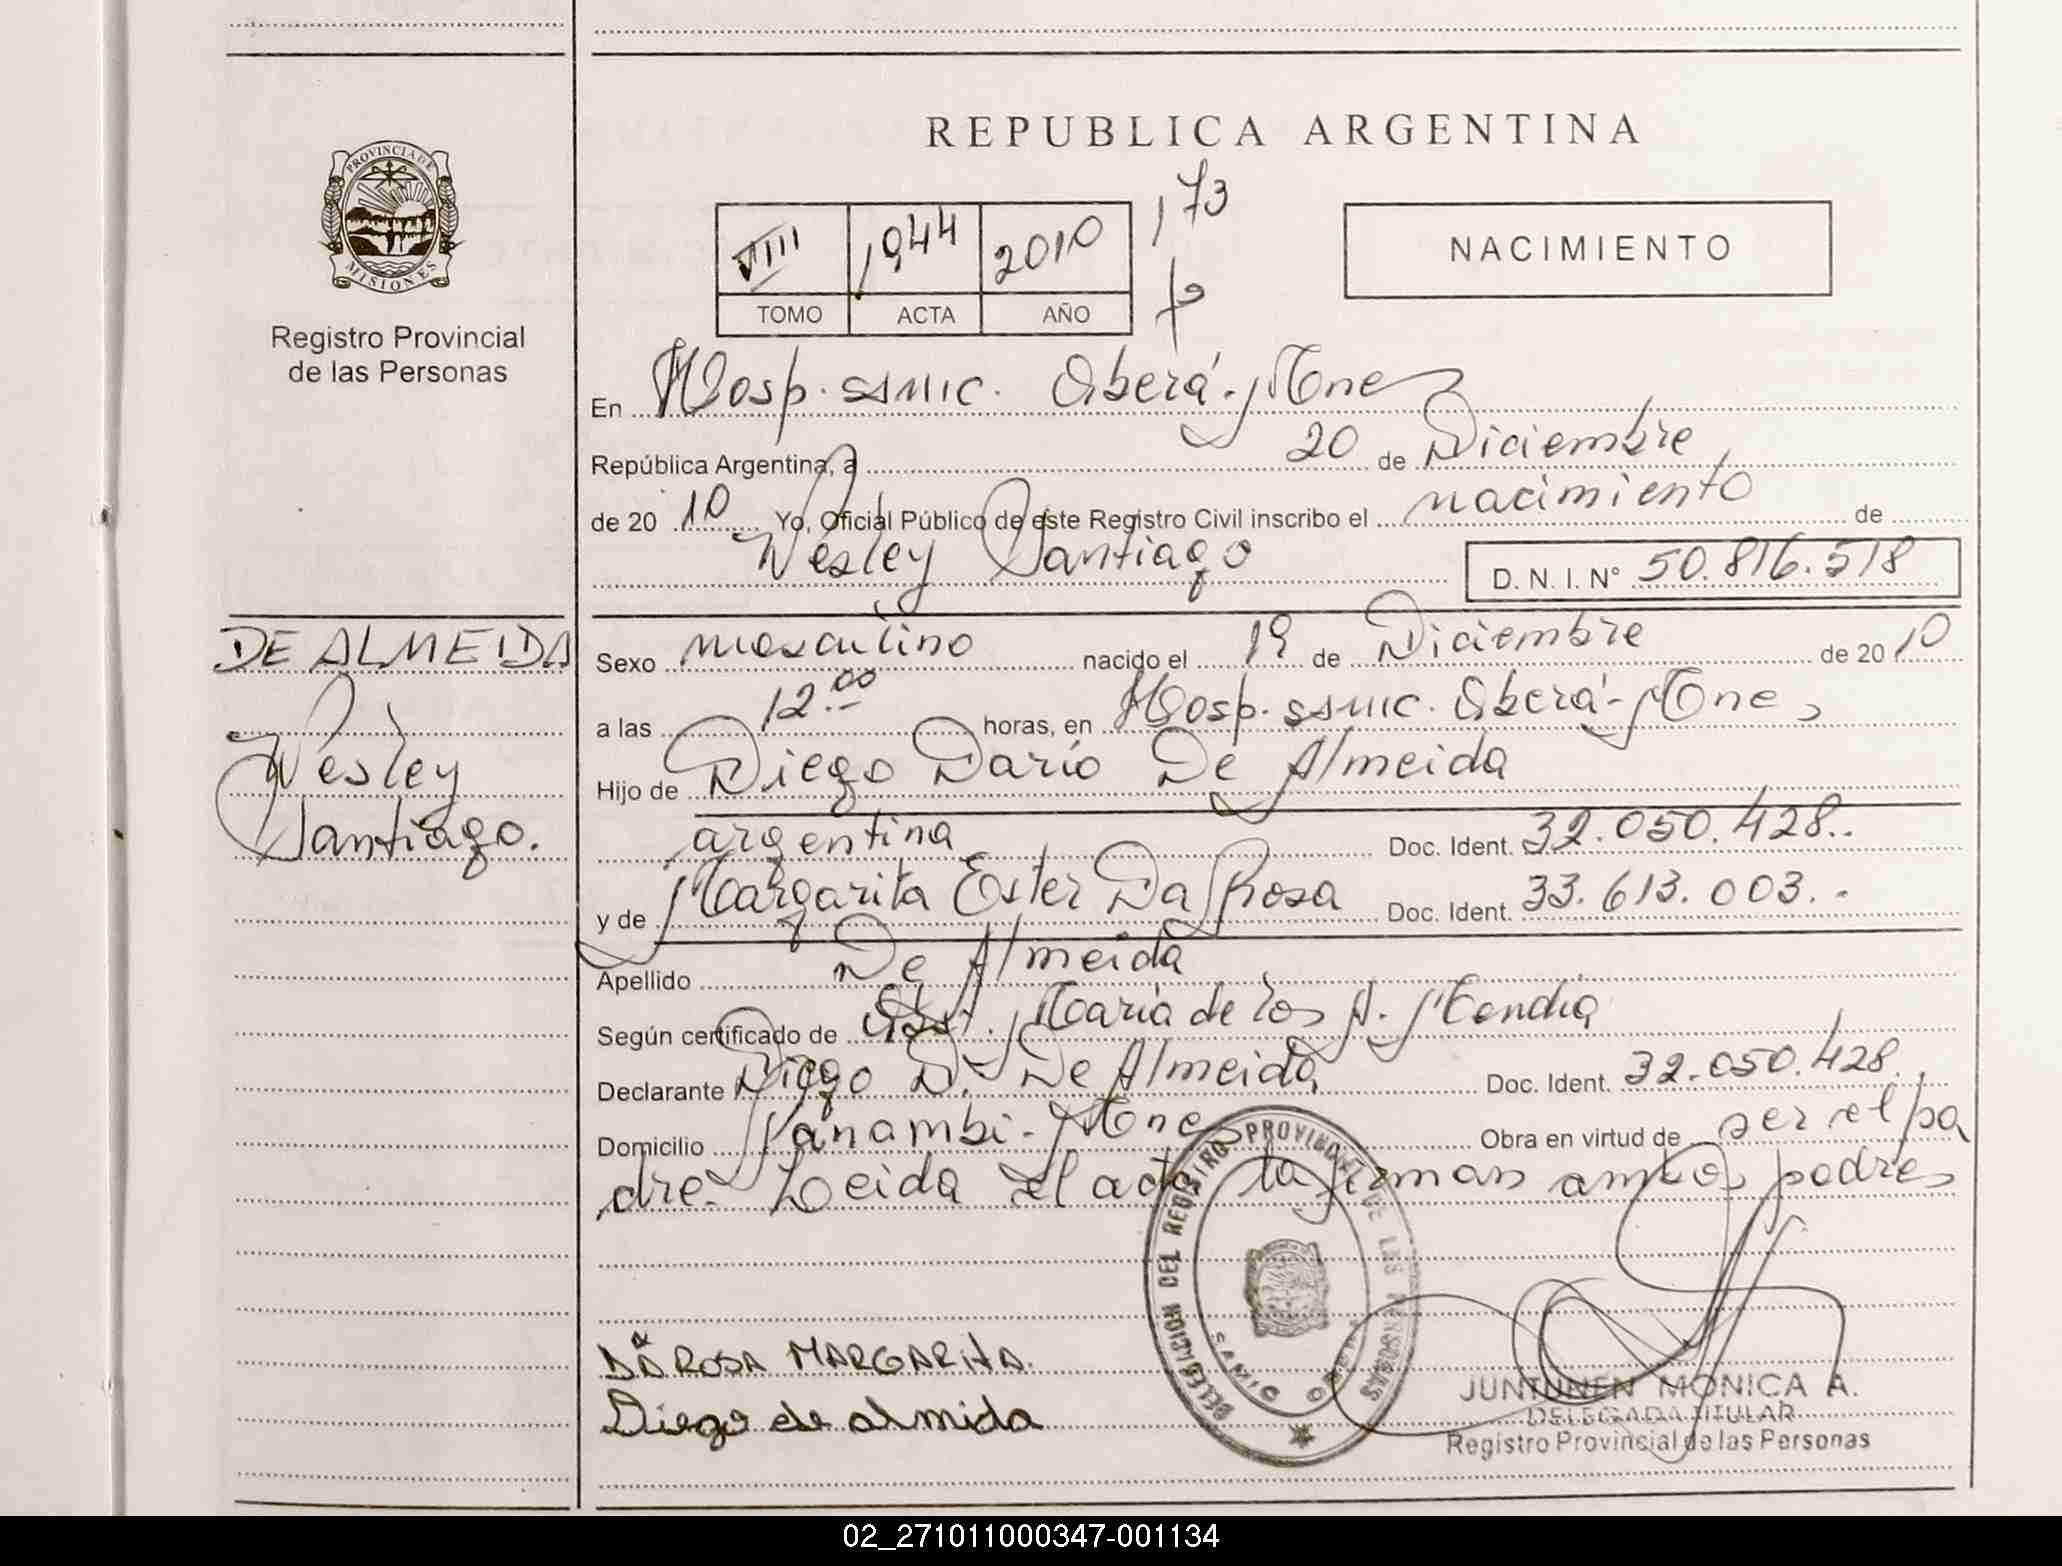 REPUBLICA ARGENTINA
PROVINCIA DE
MISIONES
Registro Provincial
de las Personas
VIII 1944 2010 173
TOMO ACTA AÑO
NACIMIENTO
En Hosp. ssmic. Oberá - Mnes
República Argentina, a 20 de Diciembre
de 2010 Yo, Oficial Público de este Registro Civil inscribo el nacimiento de
Wesley Santiago D. N. I. N° 50.816.518
DE ALMEIDA
Wesley
Santiago.
Sexo masculino nacido el 19 de Diciembre de 2010
a las 12.00 horas, en Hosp. ssmic. Oberá - Mnes
Hijo de Diego Darío De Almeida
argentina Doc. Ident. 32.050.428.
y de Margarita Ester Da Rosa Doc. Ident. 33.613.003.
Apellido De Almeida
Según certificado de Obst. María de los A.
Declarante Diego D. De Almeida Doc. Ident. 32.050.428.
Domicilio Panambí - Mnes Obra en virtud de ser el pa
dre. Leida el acta la firman ambos padres
DELEGACION DEL REGISTRO PROVINCIAL DE LAS PERSONAS
DA ROSA MARGARITA.
Diego de almida
JUNTUNEN MONICA A.
DELEGADA TITULAR
Registro Provincial de las Personas
02_271011000347-001134